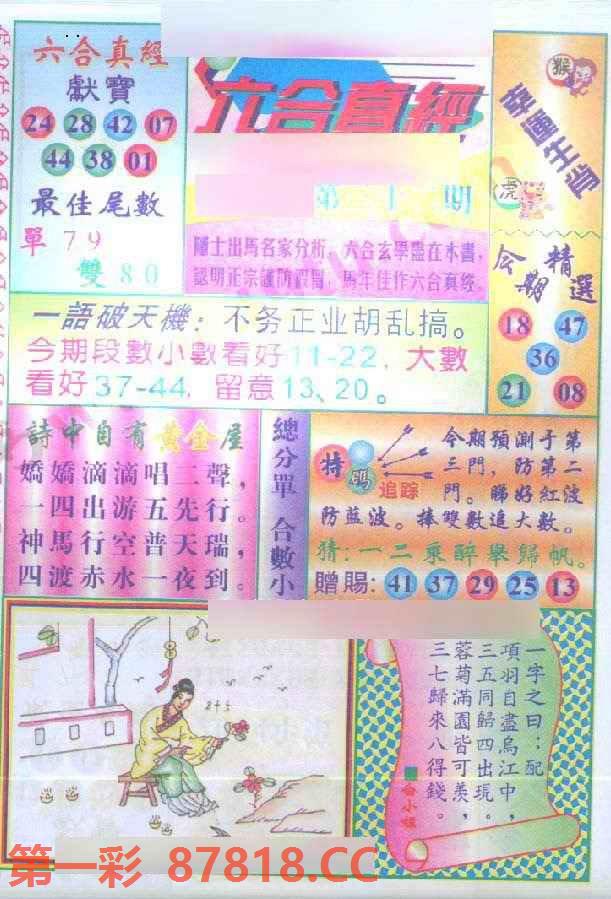 六合真經
獻寶
24 28 42 07
44 38 01
最佳尾數
單79
雙80
六合真經
第
期
隱士出馬名家分析，六合玄學盡在本書，
認明正宗謹防假冒，馬年佳作六合真經。
猴
幸運生肖
虎
今期精選
18 47
36
21 08
一語破天機：不务正业胡乱搞。
今期段數小數看好11-22，大數
看好37-44，留意13、20。
詩中自有黃金屋
嬌嬌滴滴唱二聲，
一四出游五先行。
神馬行空普天瑞，
四渡赤水一夜到。
總分單 合數小
特碼
追踪
今期預測于第
三門，防第二
門。睇好紅波
防藍波。捧雙數追大數。
猜：一二乘醉舉歸帆。
贈賜：41 37 29 25 13
一字之曰：配
項羽自盡烏江中，
三五同歸四出現。
蓉菊滿園皆可羨，
三七歸來八得錢。
白小姐
第一彩 87818.CC